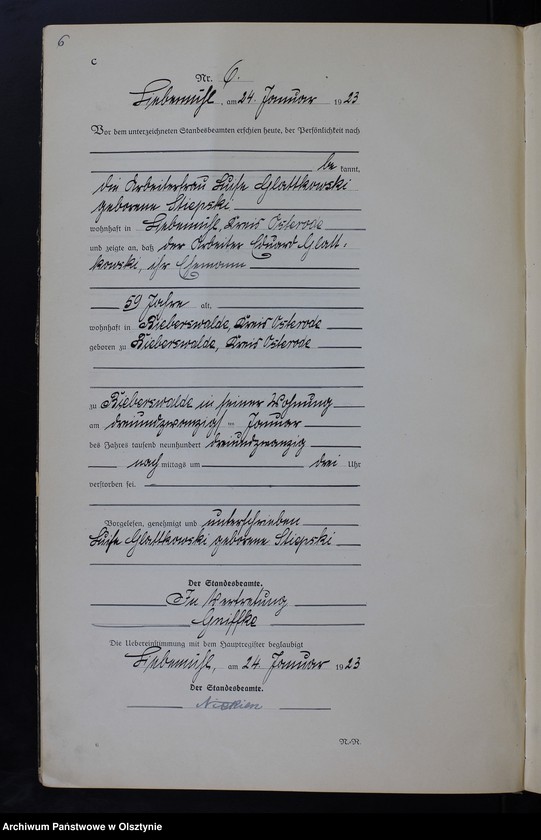 6
C
Nr. 6.
Liebemühl, am 24. Januar 1923
Vor dem unterzeichneten Standesbeamten erschien heute, der Persönlichkeit nach
be kannt,
die Arbeiterfrau Luise Glattkowski
geborene Stiepski
wohnhaft in Liebemühl, Kreis Osterode
und zeigte an, daß der Arbeiter Eduard Glatt-
kowski, ihr Ehemann
59 Jahre alt,
wohnhaft in Bieberswalde, Kreis Osterode
geboren zu Bieberswalde, Kreis Osterode
zu Bieberswalde in seiner Wohnung
am dreiundzwanzigsten Januar
des Jahres tausend neunhundert dreiundzwanzig
nach mittags um drei Uhr
verstorben sei.
Vorgelesen, genehmigt und unterschrieben
Luise Glattkowski geborene Stiepski
Der Standesbeamte.
In Vertretung
Gniffke
Die Uebereinstimmung mit dem Hauptregister beglaubigt
Liebemühl, am 24. Januar 1923
Der Standesbeamte.
N/R.
Archiwum Państwowe w Olsztynie